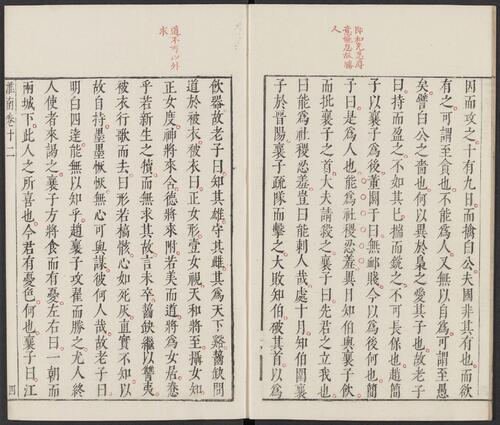 即和光忍辱
意谕忍故勝
人
因而攻之十有九日而擒白公夫國非其有也而欲
有之可謂至貪也不能爲人又無以自爲可謂至愚
矣譬白公之嗇也何以異於梟之愛其子也故老子
曰持而盈之不如其已揣而銳之不可長保也趙簡
子以襄子爲後董閼于曰無卹賤今以爲後何也簡
子曰是爲人也能爲社稷忍羞異日知伯與襄子飲
而批襄子之首大夫請殺之襄子曰先君之立我也
曰能爲社稷忍羞豈曰能刺人哉處十月知伯圍襄
子於晉陽襄子疏隊而擊之大敗知伯破其首以爲
道不可以外
求
飲器故老子曰知其雄守其雌其爲天下谿齧缺問
道於被衣被衣曰正女形壹女視天和將至攝女知
正女度神將來舍德將來附若美而道將爲女居惷
乎若新生之犢而無求其故言未卒齧缺繼以讐夷
被衣行歌而去曰形若槁骸心如死灰直實不知以
故自持墨墨恢恢無心可與謀彼何人哉故老子曰
明白四達能無以知乎趙襄子攻翟而勝之尤人終
人使者來謁之襄子方將食而有憂色左右曰一朝而
兩城下此人之所喜也今君有憂色何也襄子曰江
淮南卷十二
四